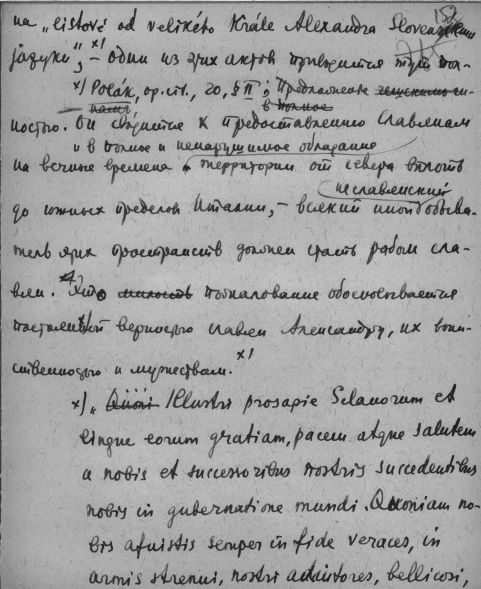 152
на "listové od velikého Krále Alexandra Slovenskému
jazyku", x) – один из этих актов приводится тут пол-
x) Polák, op. cit., 20, § II; Предложение
ностью. Он сводится к предоставлению славянам
и в полное и ненарушимое обладание
на вечные времена территории от севера вплоть
неславянский
до южных пределов Италии, – всякий иной обыва-
тель этих пространств должен стать рабом сла-
вян. Это милость пожалование обосновывается
постоянной верностью славян Александру, их воин-
ственностью и мужеством. x)
x) " Illustri prosapie Sclavorum et
lingue eorum gratiam, pacem atque salutem
a nobis et successoribus nostris succedentibus
nobis in gubernatione mundi. Quoniam no-
bis afuistis semper in fide veraces, in
armis strenui, nostri adiutores, bellicosi,